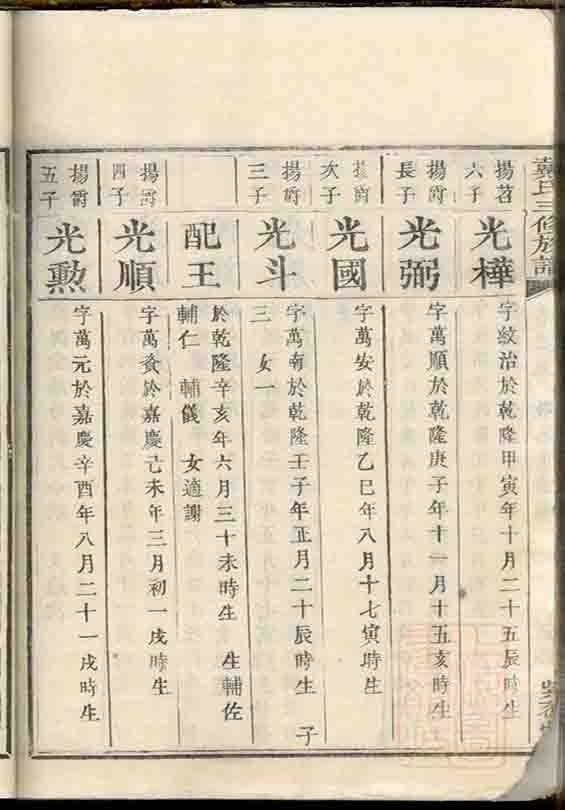 戴氏三修族譜
揚苕六子
光樺
字紋治於乾隆甲寅年十月二十五辰時生
揚爵長子
光弼
字萬順於乾隆庚子年十一月十五亥時生
揚爵次子
光國
字萬安於乾隆乙巳年八月十七寅時生
揚爵三子
光斗
字萬南於乾隆壬子年正月二十辰時生 子
三 女一
配王
於乾隆辛亥年六月三十未時生 生輔佐
輔仁 輔儀 女適謝
揚爵四子
光順
字萬資於嘉慶己未年三月初一戌時生
揚爵五子
光勲
字萬元於嘉慶辛酉年八月二十一戌時生